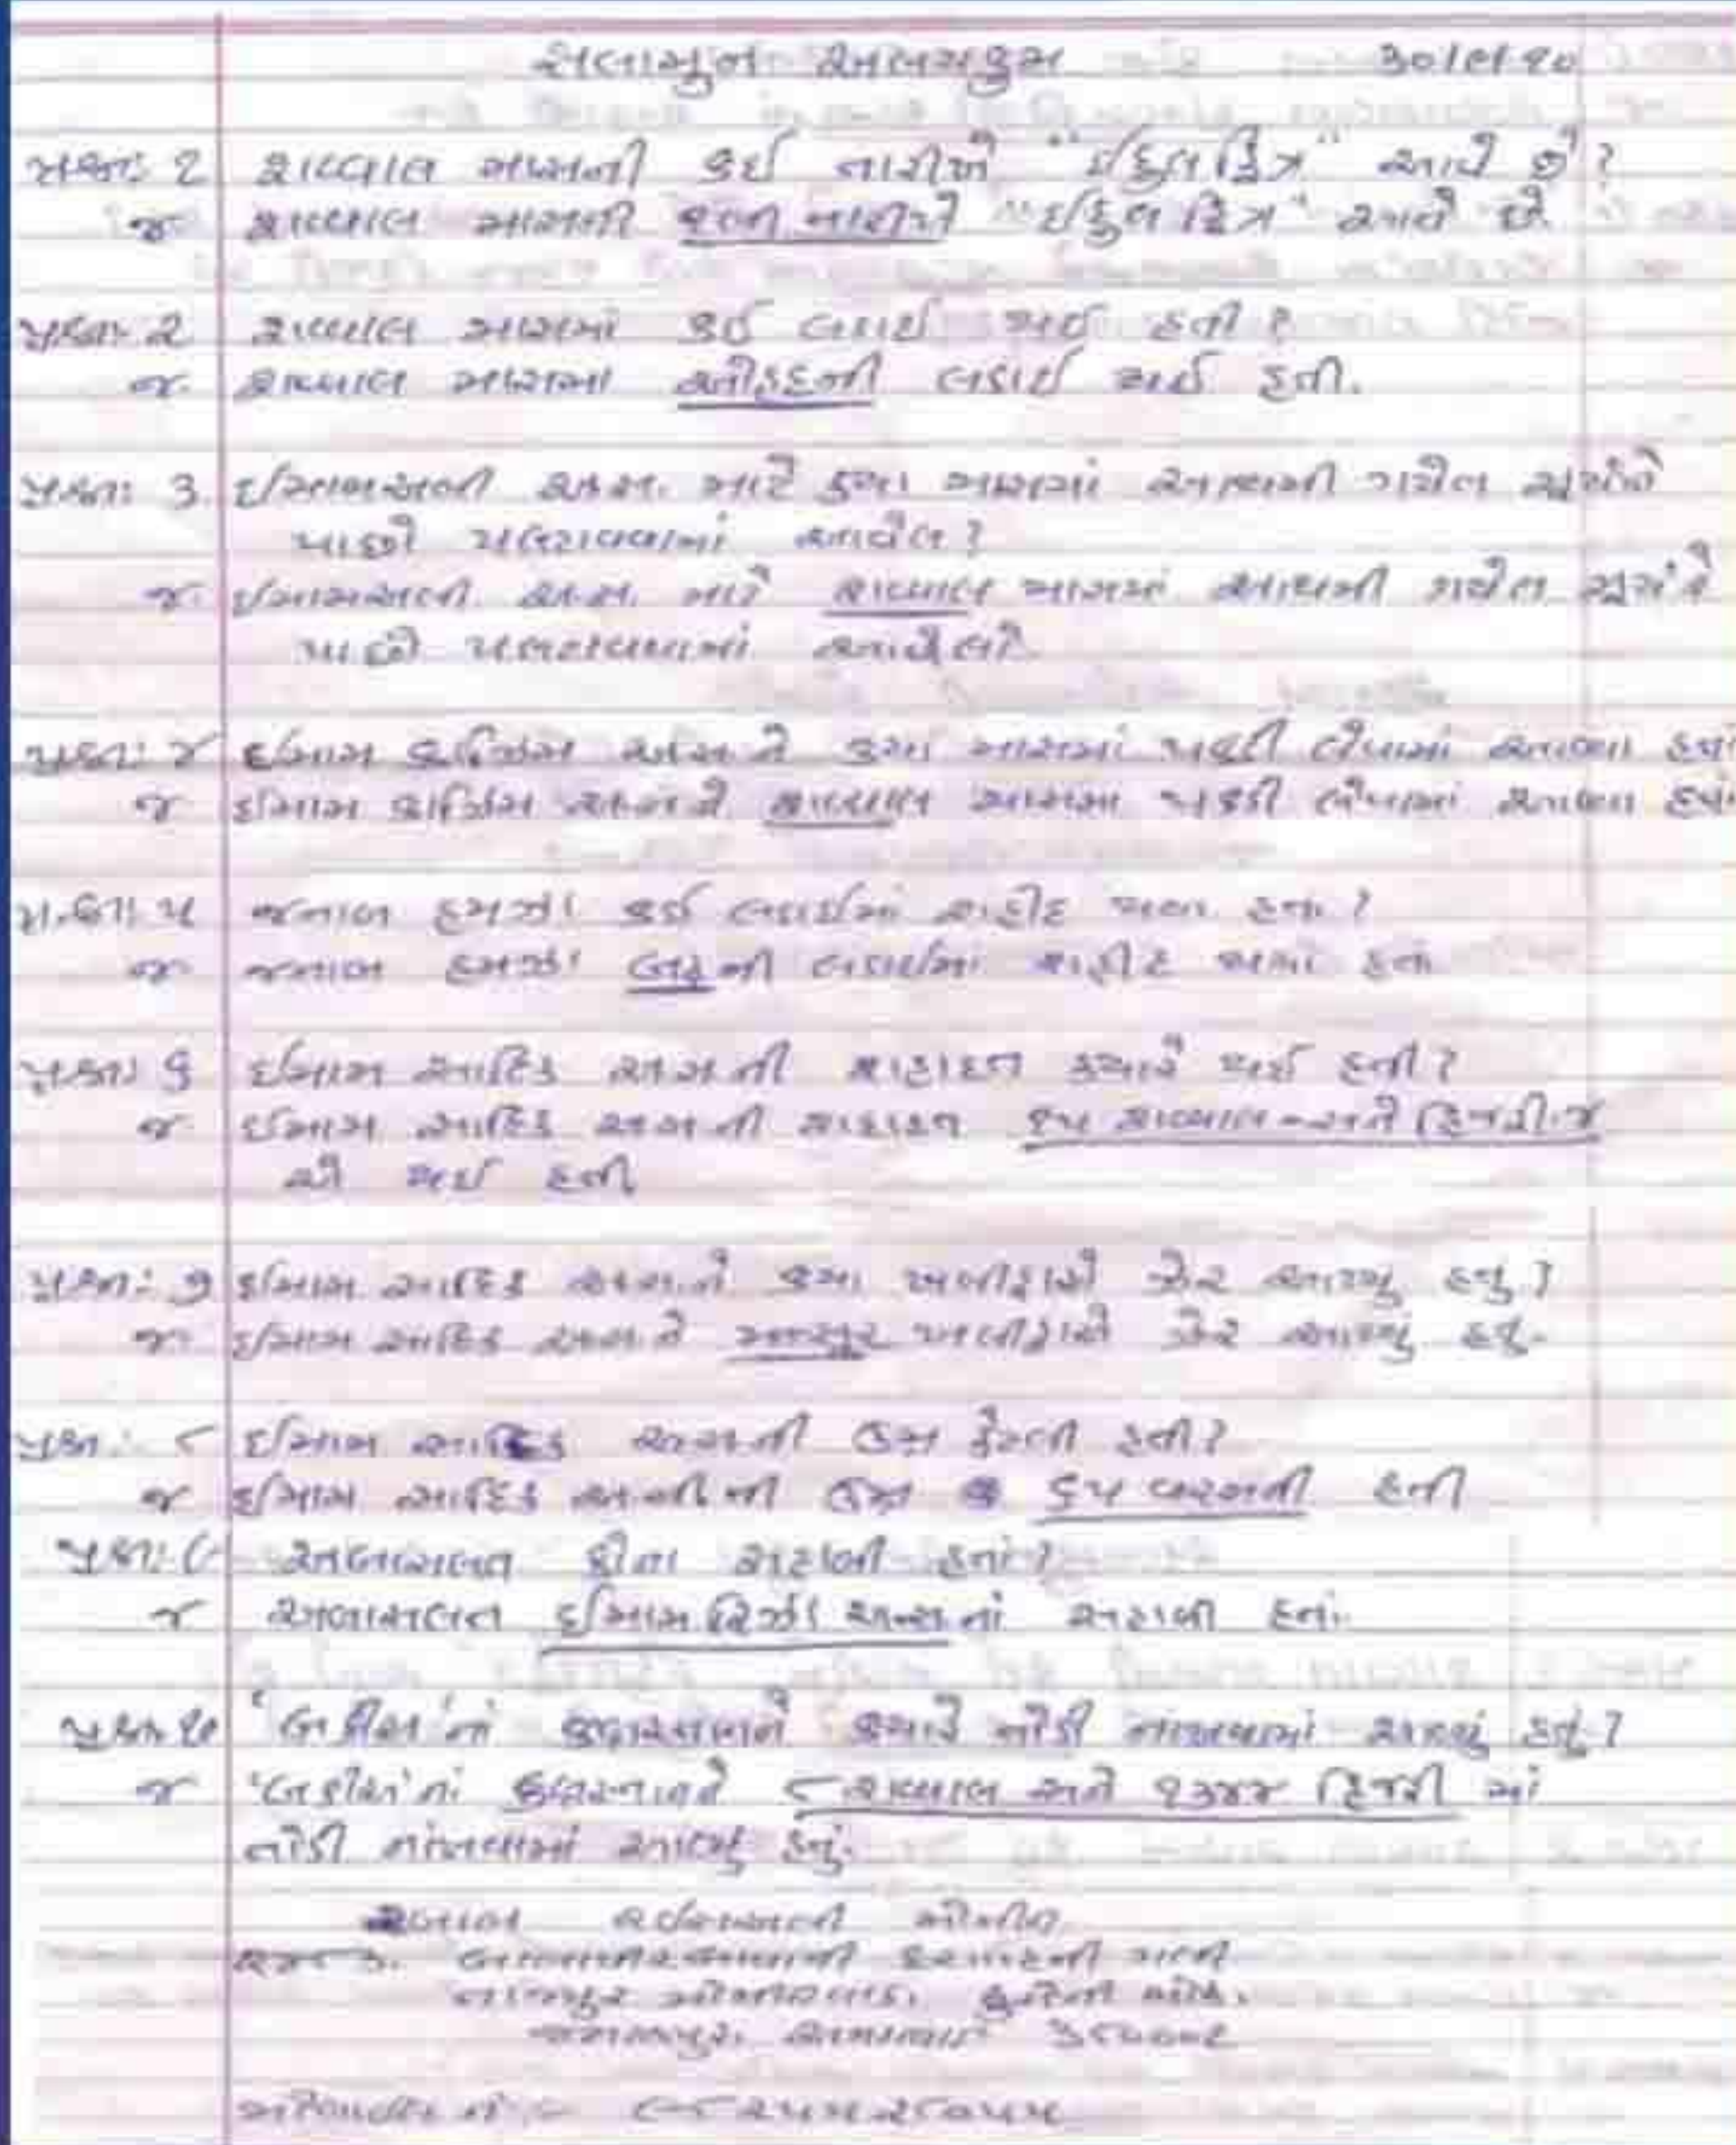 સલામુન અલયકુમ ૩૦/૯/૧૦
પ્રશ્નઃ ૧ શવ્વાલ માસની કઈ તારીખે "ઈદુલ ફિત્ર" આવે છે?
જ. શવ્વાલ માસની ૧લી તારીખે "ઈદુલ ફિત્ર" આવે છે.
પ્રશ્નઃ ૨ શવ્વાલ માસમાં કઈ લડાઈ થઈ હતી?
જ. શવ્વાલ માસમાં ઓહદની લડાઈ થઈ હતી.
પ્રશ્નઃ ૩. ઈમામઅલી અ.સ. માટે કયા માસમાં આથમી ગયેલ સુર્યને
પાછો પલટાવવામાં આવેલ?
જ. ઈમામઅલી અ.સ. માટે શવ્વાલ માસમાં આથમી ગયેલ સુર્યને
પાછો પલટાવવામાં આવેલો.
પ્રશ્નઃ ૪ ઈમામ કાઝિમ અ.સ.ને કયા માસમાં પકડી લેવામાં આવ્યા હતાં
જ ઈમામ કાઝિમ અ.સ.ને શવ્વાલ માસમાં પકડી લેવામાં આવ્યા હતાં
પ્રશ્નઃ ૫ જનાબ હમઝા કઈ લડાઈમાં શહીદ થયા હતા?
જ જનાબ હમઝા ની લડાઈમાં શહીદ થયાં હતાં
પ્રશ્નઃ ૬ ઈમામ સાદિક અ.સ.ની શહાદત કયારે થઈ હતી?
જ ઈમામ સાદિક અ.સ.ની શહાદત ૧૫ શવ્વાલ અને હિજરી
થઈ હતી
પ્રશ્નઃ ૭ ઈમામ સાદિક અ.સ.ને કયા ખલીફાએ ઝેર આપ્યું હતું?
જ. ઈમામ સાદિક અ.સ.ને મન્સુર ખલીફાએ ઝેર આપ્યું હતું.
પ્રશ્નઃ ૮ ઈમામ સાદિક અ.સ.ની ઉમ્ર કેટલી હતી?
જ ઈમામ સાદિક ની ઉમ્ર ૬૫ વરસની હતી
પ્રશ્નઃ ૯ અબાસલત કોના સહાબી હતાં?
જ અબાસલત ઈમામ રિઝા અ.સ.નાં સહાબી હતાં.
પ્રશ્નઃ ૧૦ 'બકીઅ'નાં કબ્રસ્તાનને કયારે તોડી નાખવામાં આવ્યું હતું?
જ 'બકીઅ'નાં કબ્રસ્તાનને ૮ શવ્વાલ અને ૧૩૪૪ હિજરી માં
તોડી નાંખવામાં આવ્યું હતું.
મોમીન
ગલી
જમાલપુર,